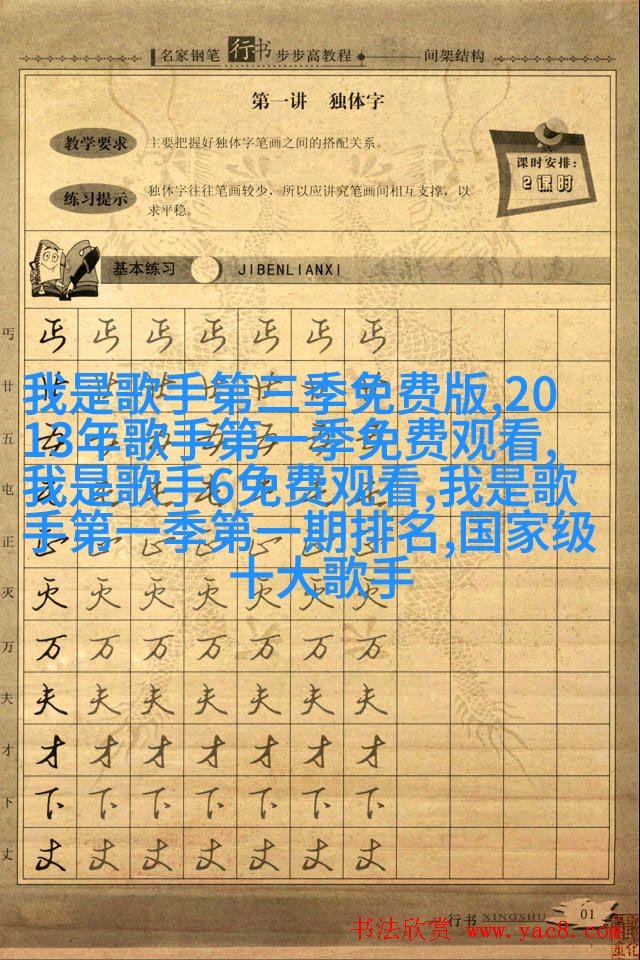 名家钢笔 行书 步步高教程 间架结构
第一讲 独体字
教学要求 主要把握好独体字笔画之间的搭配关系。
课时安排:
2课时
练习提示 独体字往往笔画较少，所以应讲究笔画间相互支撑，以
求平稳。
基本练习 JIBENLIANXI
丐 丐 丐 丐 丐 丐 丐 丐
廿
我是歌手第三季免费版,20
13年歌手第一季免费观看,
五
我是歌手6免费观看,我是歌
屯
手第一季第一期排名,国家级
正
十大歌手
灭 灭 灭 灭 灭 灭 灭 灭
万 万 万 万 万 万 万 万
夫 夫 夫 夫 夫 夫 夫 夫
才 才 才 才 才 才 才 才
下 下 下 下 下 下 下 下
丈 丈 丈 丈 丈 丈 丈 丈
行书 XINGSHU 01
书法欣赏 www.yac8.com